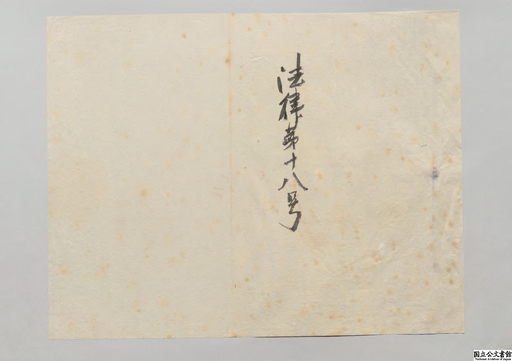 法律第十八号
国立公文書館
National Archives of Japan